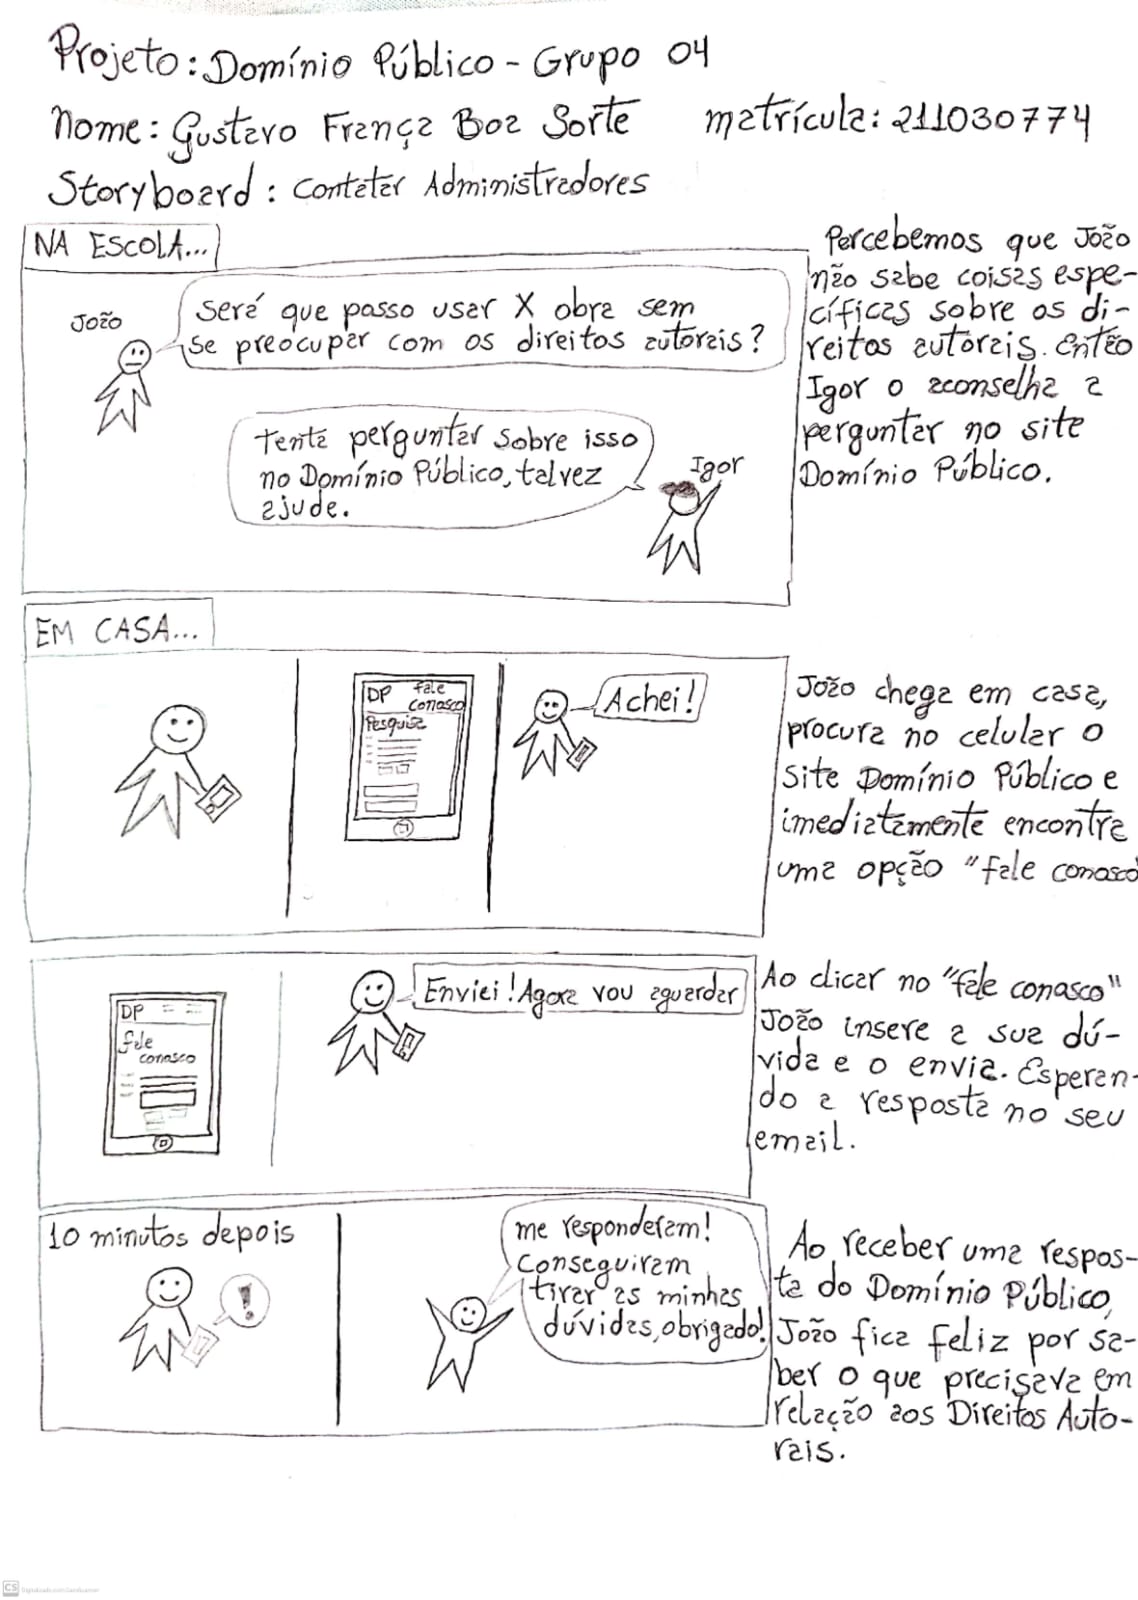 Projeto: Domínio Público - Grupo 04
Nome: Gustavo França Boa Sorte matrícula: 211030774
Storyboard: Contatar Administradores
NA ESCOLA...
João
Será que posso usar X obra sem
se preocupar com os direitos autorais?
Tente perguntar sobre isso
no Domínio Público, talvez
ajude.
Igor
Percebemos que João
não sabe coisas espe-
cíficas sobre os di-
reitos autorais. Então
Igor o aconselha a
perguntar no site
Domínio Público.
EM CASA...
DP fale
conosco
Pesquisa
Achei!
João chega em casa,
procura no celular o
site Domínio Público e
imediatamente encontra
uma opção "fale conosco
DP
fale
conosco
Enviei! Agora vou aguardar
Ao clicar no "fale conosco"
João insere a sua dú-
vida e o envia. Esperan-
do a resposta no seu
email.
10 minutos depois
!
me responderam!
Conseguiram
tirar as minhas
dúvidas, obrigado!
Ao receber uma respos-
ta do Domínio Público,
João fica feliz por sa-
ber o que precisava em
relação aos Direitos Auto-
rais.
CS Digitalizado com CamScanner